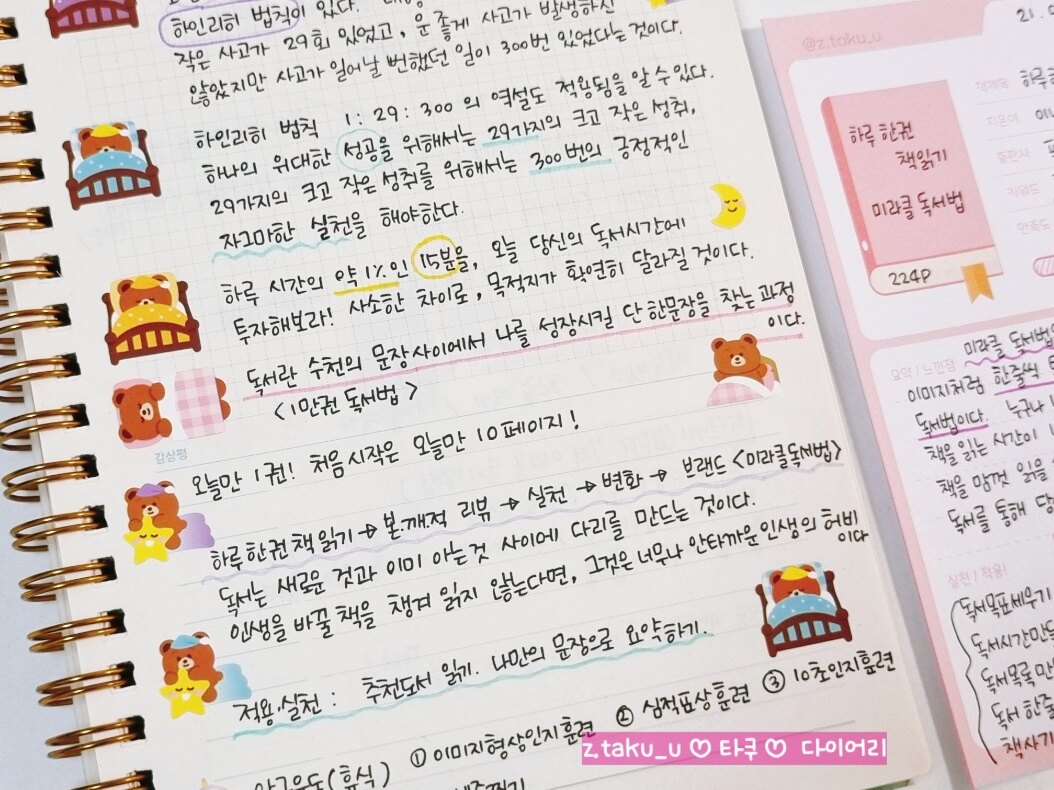 하인리히 법칙이 있다.
작은 사고가 29회 있었고, 운 좋게 사고가 발생하진
않았지만 사고가 일어날 뻔했던 일이 300번 있었다는 것이다.
하인리히 법칙 1:29:300의 역설도 적용됨을 알 수 있다.
하나의 위대한 성공을 위해서는 29가지의 크고 작은 성취,
29가지의 크고 작은 성취를 위해서는 300번의 긍정적인
자그마한 실천을 해야한다.
하루 시간의 약 1%인 15분을, 오늘 당신의 독서시간에
투자해보라! 사소한 차이로, 목적지가 확연히 달라질 것이다.
독서란 수천의 문장사이에서 나를 성장시킬 단 한문장을 찾는과정
이다.
<1만권 독서법>
감상평
오늘만 1권! 처음 시작은 오늘만 10페이지!
하루한권책읽기→본.깨적 리뷰→실천→변화→ 브랜드<미라클독서법>
독서는 새로운 것과 이미 아는것 사이에 다리를 만드는 것이다.
인생을 바꿀 책을 챙겨 읽지 않는다면, 그것은 너무나 안타까운 인생의 허비
이다
적용.실천 : 추천도서 읽기. 나만의 문장으로 요약하기.
① 이미지형상인지훈련 ② 심적표상훈련 ③ 10초인지훈련
(휴식)
z.taku_u ♡ 타쿠 ♡ 다이어리
@z.taku_u
책제목 하루
지은이
출판사
키워드
만족도
하루 한권
책읽기
미라클 독서법
224P
요약 | 느낀점 미라클 독서법
이미지처럼 한줄씩
독서법이다. 누구나
책을 읽는 시간이
책을 맘껏 읽을
독서를 통해
실천 | 적용!
독서목표세우기
독서시간만
독서목록
독서
책사기